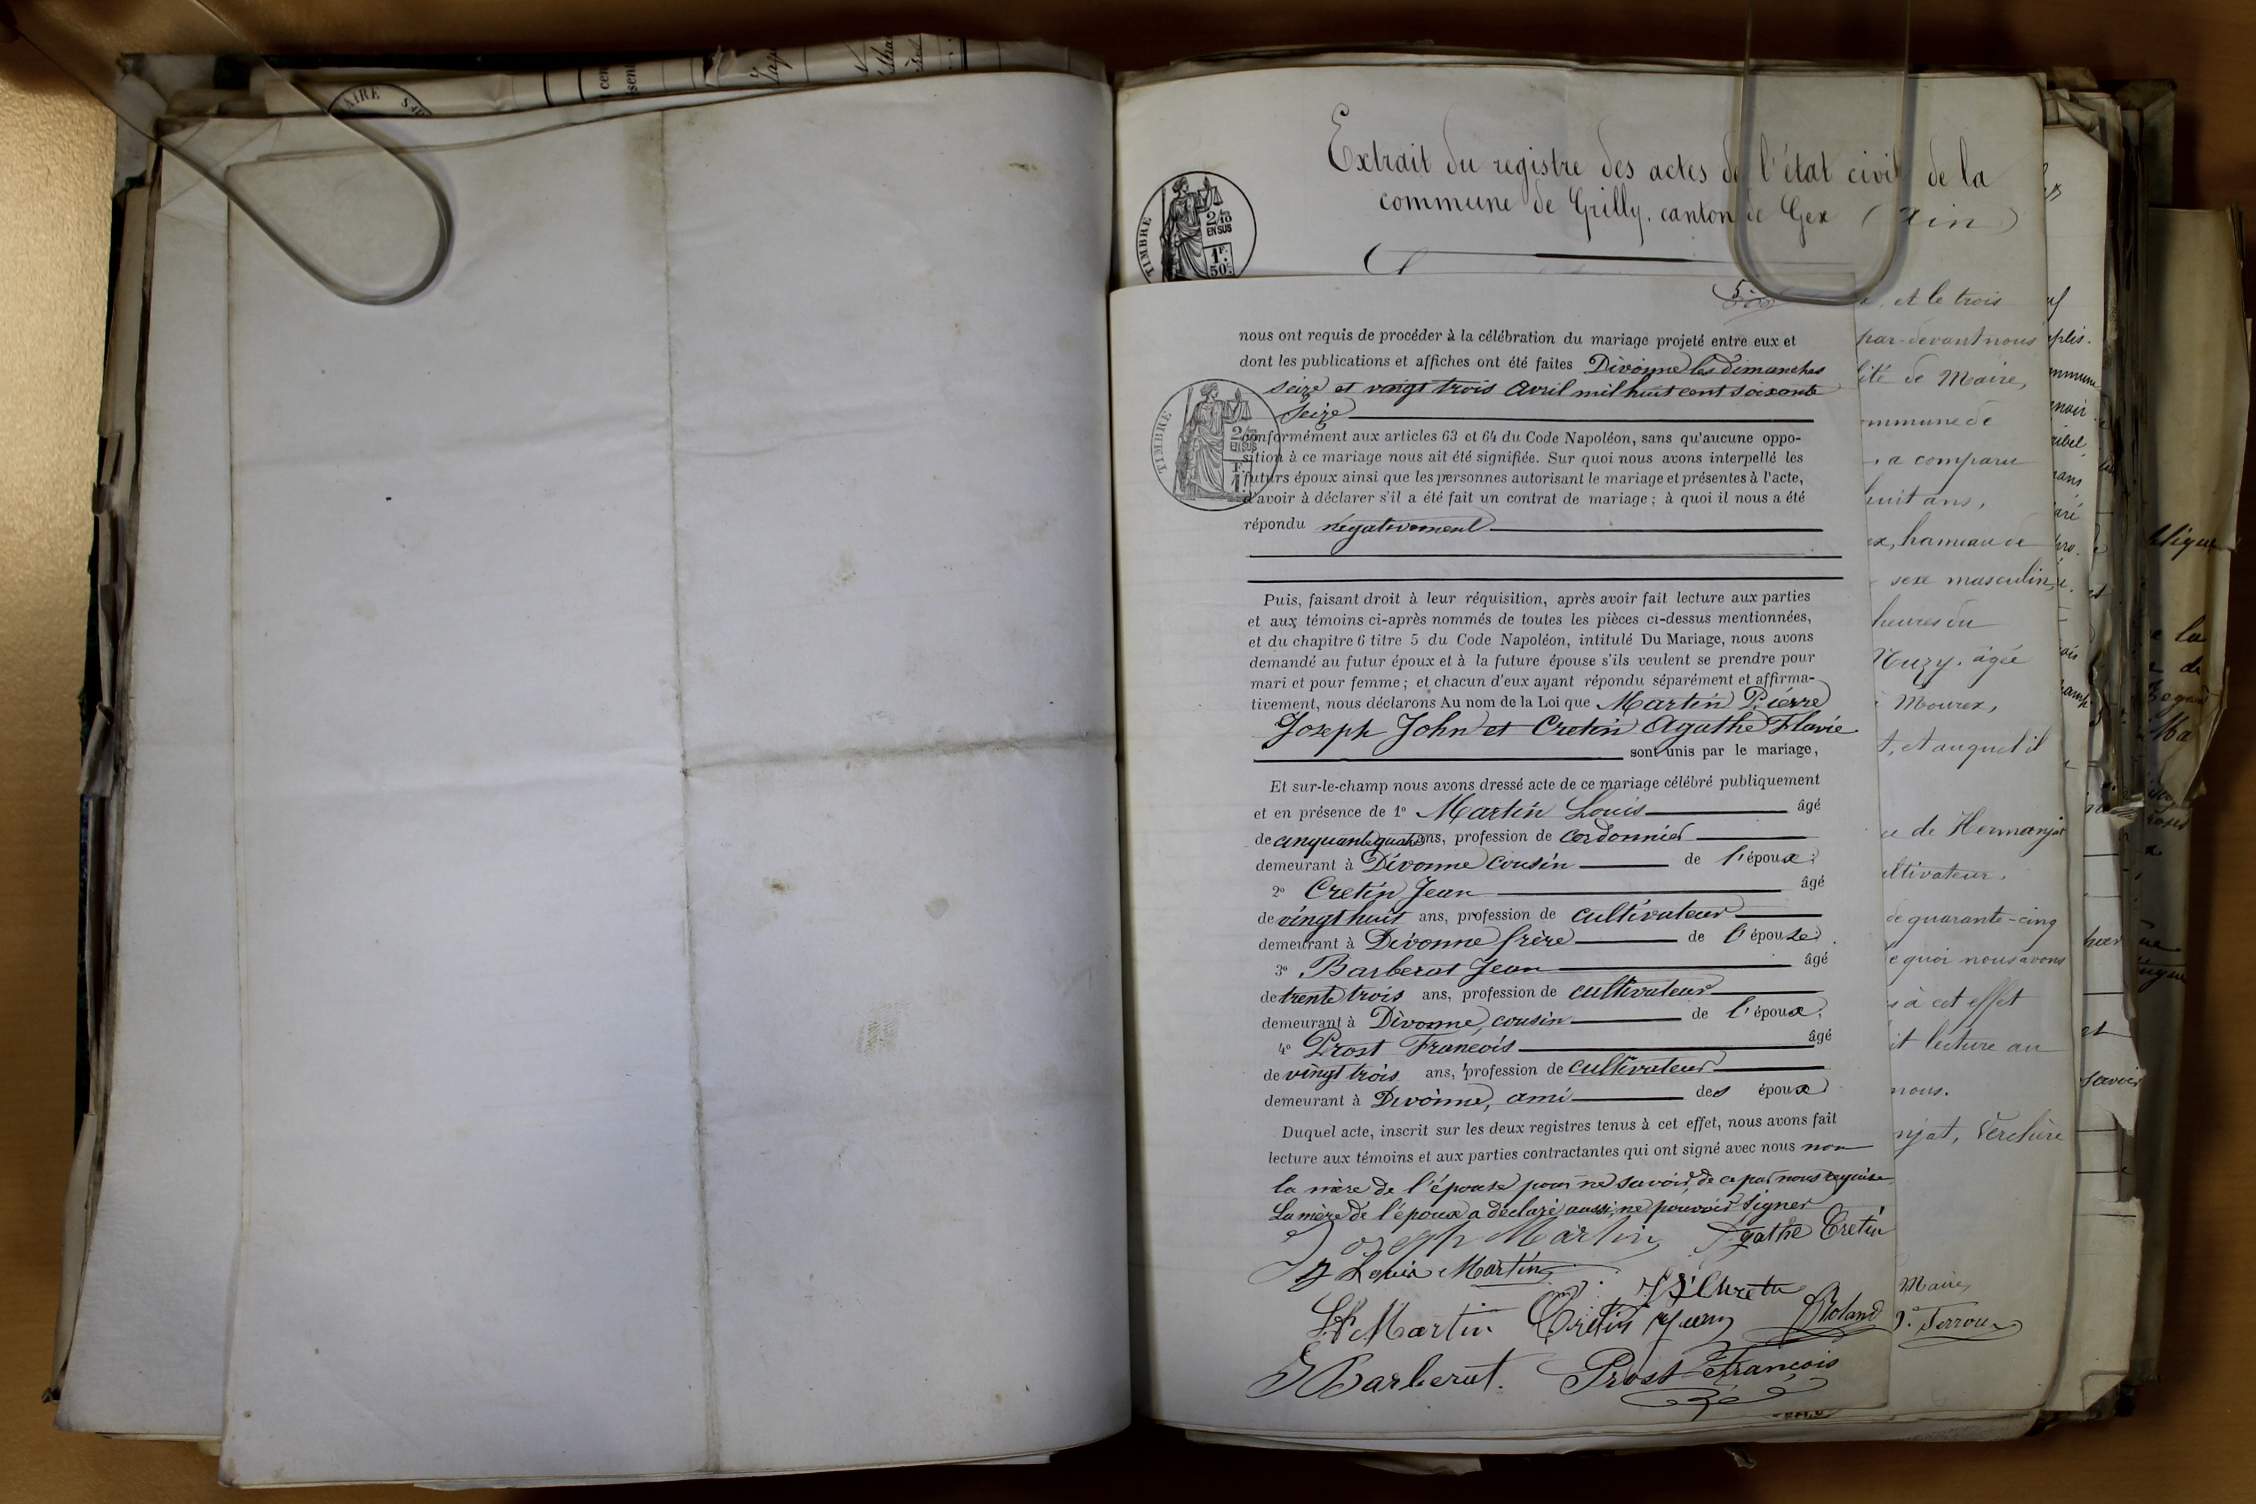 Extrait du registre des actes de l'état civil de la
commune de Grilly, canton de Gex (Ain)
TIMBRE
2/10
EN SUS
1F.
50c
5
nous ont requis de procéder à la célébration du mariage projeté entre eux et
dont les publications et affiches ont été faites Divonne les dimanches
seize et vingt trois avril mil huit cent soixante
seize
TIMBRE
2/10
EN SUS
conformément aux articles 63 et 64 du Code Napoléon, sans qu'aucune oppo-
sition à ce mariage nous ait été signifiée. Sur quoi nous avons interpellé les
futurs époux ainsi que les personnes autorisant le mariage et présentes à l'acte,
d'avoir à déclarer s'il a été fait un contrat de mariage ; à quoi il nous a été
répondu négativement
Puis, faisant droit à leur réquisition, après avoir fait lecture aux parties
et aux témoins ci-après nommés de toutes les pièces ci-dessus mentionnées,
et du chapitre 6 titre 5 du Code Napoléon, intitulé Du Mariage, nous avons
demandé au futur époux et à la future épouse s'ils veulent se prendre pour
mari et pour femme ; et chacun d'eux ayant répondu séparément et affirma-
tivement, nous déclarons Au nom de la Loi que Martin Pierre
Joseph John et Cretin Agathe Flavie
sont unis par le mariage,
Et sur-le-champ nous avons dressé acte de ce mariage célébré publiquement
et en présence de 1º Martin Louis âgé
de cinquante quatre ans, profession de cordonnier
demeurant à Divonne cousin de l'époux.
2º Cretin Jean âgé
de vingt huit ans, profession de cultivateur
demeurant à Divonne frère de l'épouse.
3º Barberat Jean âgé
de trente trois ans, profession de cultivateur
demeurant à Divonne, cousin de l'époux.
4º Prost François âgé
de vingt trois ans, profession de cultivateur
demeurant à Divonne, ami des époux
Duquel acte, inscrit sur les deux registres tenus à cet effet, nous avons fait
lecture aux témoins et aux parties contractantes qui ont signé avec nous non
la mère de l'épouse pour ne savoir, de ce par nous requise
La mère de l'époux a déclaré aussi, ne pouvoir signer
Joseph Martin Agathe Cretin
Louis Martin
Martin Cretin Roland
Barberat. Prost François
et le trois
par-devant nous
Maire,
commune de
a comparu
huit ans,
hameau de
sexe masculin,
heures du
âgée
Mourex,
et auquel il
de Hermanjat
cultivateur,
de quarante-cinq
quoi nous avons
à cet effet
lecture au
nous.
Verchère
Maire,